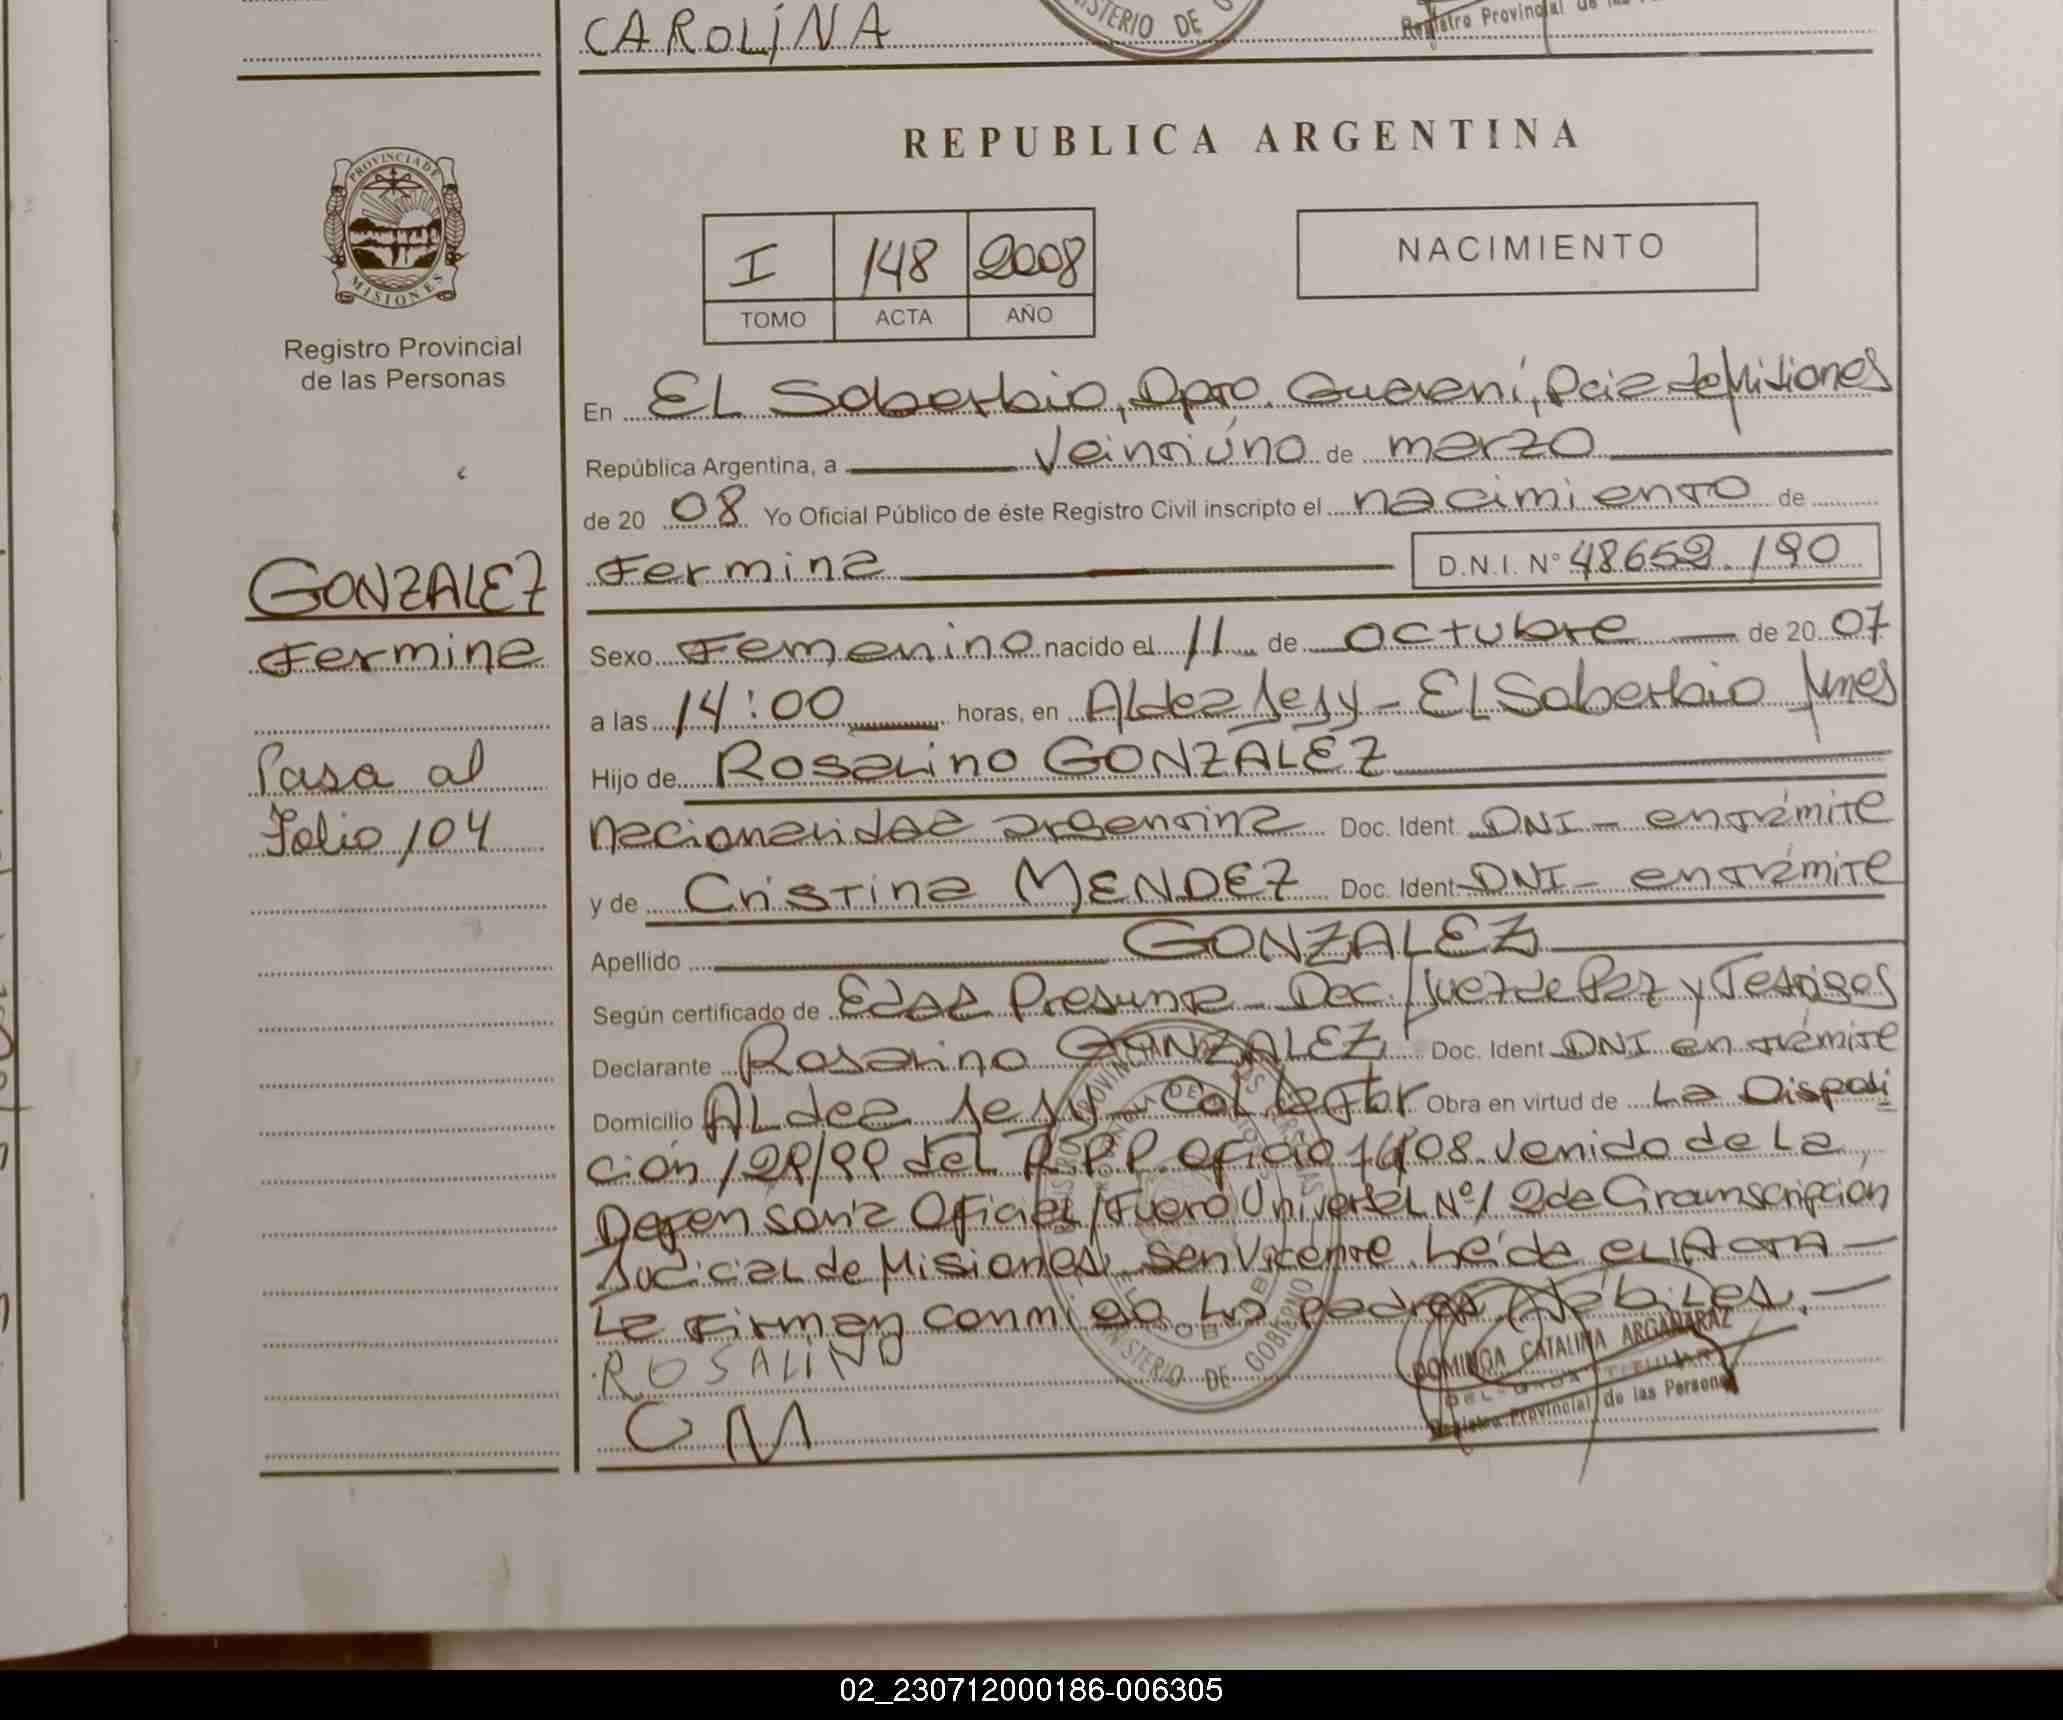 CAROLINA
MINISTERIO DE
Registro Provincial de las
PROVINCIA DE MISIONES
Registro Provincial
de las Personas
REPUBLICA ARGENTINA
I 148 2008
TOMO ACTA AÑO
NACIMIENTO
En EL Soberbio, Dpto. Guaraní, Pcia de Misiones
República Argentina, a veintiúno de marzo
de 20 08 Yo Oficial Público de éste Registro Civil inscripto el nacimiento de
Fermina D.N.I. N° 48652.190
GONZALEZ
Fermina
Pasa al
Folio 104
Sexo Femenino nacido el 11 de octubre de 20 07
a las 14:00 horas, en ALdea Jejy - EL Soberbio Mnes
Hijo de Rosalino GONZALEZ
nacionalidad argentina Doc. Ident. DNI - en trámite
y de Cristina MENDEZ Doc. Ident DNI - en trámite
Apellido GONZALEZ
Según certificado de Edad Presunta - Dec. Juez de Paz y Testigos
Declarante Rosalino GONZALEZ Doc. Ident DNI en trámite
Domicilio ALdea Jejy - Col Obra en virtud de La Disposi
ción 129/99 del R.P.P. Oficio 16/08 venido de La
Defensoría Oficial Fuero Universal N°1 2da Circunscripción
Judicial de Misiones, San Vicente. Leída el ACTA -
La firman conmigo Los padres hábiles. -
ROSALINO
C M
MINISTERIO DE GOBIERNO
DOMINGA CATALINA ARGAÑARAZ
Registro Provincial de las Personas
02_230712000186-006305